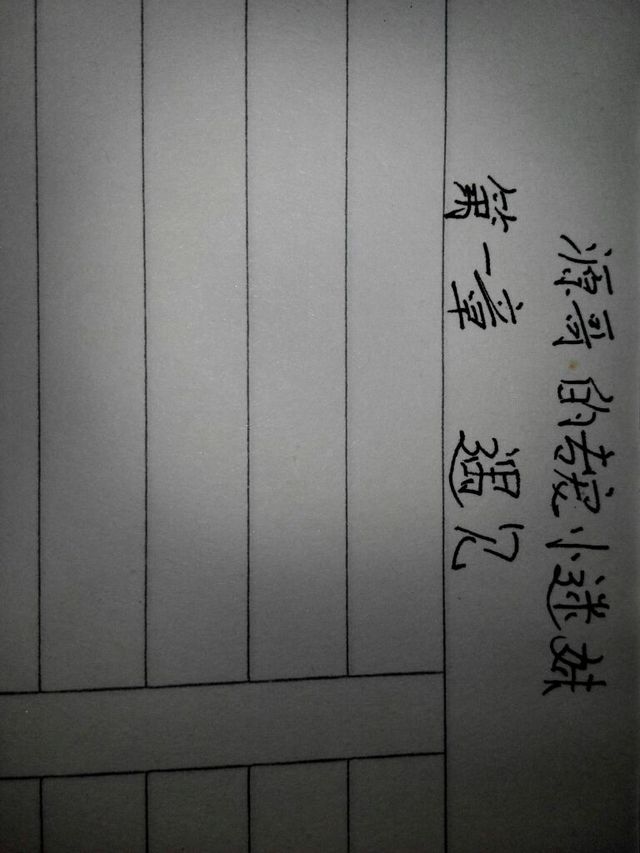 源哥的专宠小迷妹
第一章 遇见